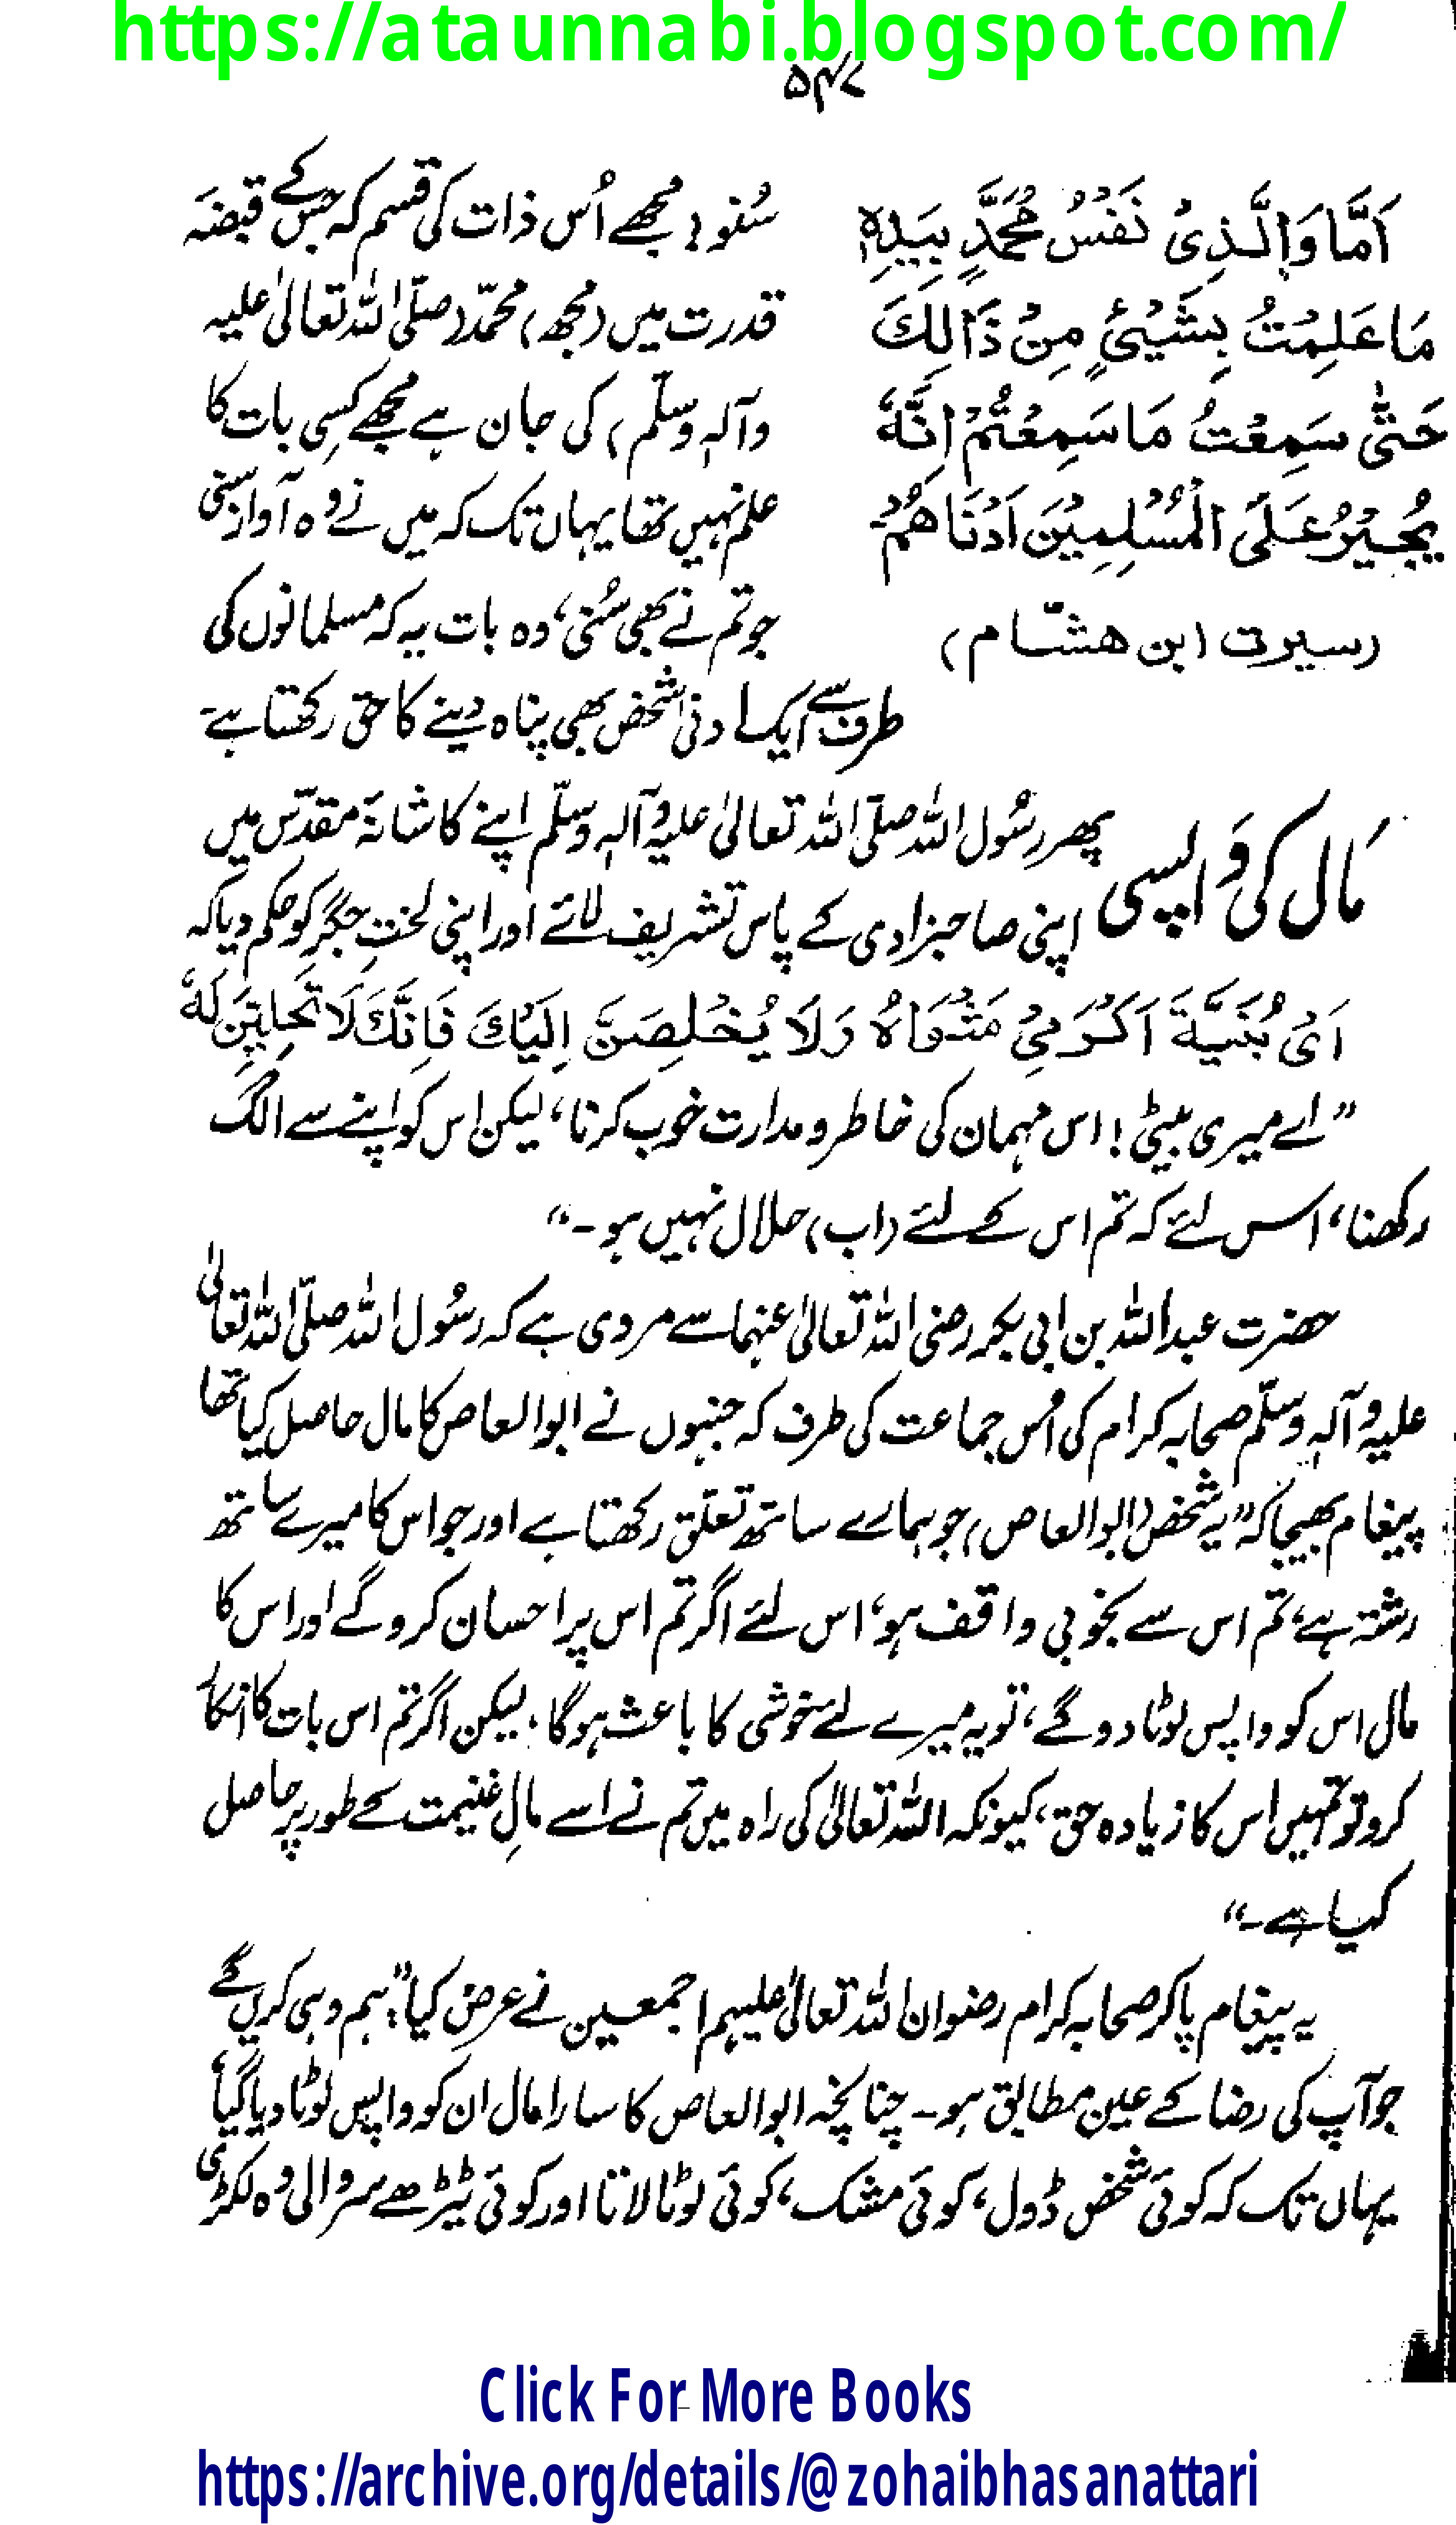 https://ataunnabi.blogspot.com/
۵۴۷
اَمَّا وَالَّذِیْ نَفْسُ مُحَمَّدٍ بِیَدِہٖ
مَا عَلِمْتُ بِشَیْئٍ مِنْ ذَالِکَ
حَتّٰی سَمِعْتُ مَا سَمِعْتُمْ اِنَّہٗ
یُجِیْرُ عَلَی الْمُسْلِمِیْنَ اَدْنَاھُمْ۔
(سیرت ابن ھشّام)
سُنو! مجھے اُس ذات کی قسم کہ جس کے قبضہَ
قدرت میں (مجھ) محمّد (صلّی اللہ تعالیٰ علیہ
وآلہٖ وسلّم) کی جان ہے مجھے کسِی بات کا
علم نہیں تھا یہاں تک کہ میں نے وُہ آواز سنی
جو تم نے بھی سُنی، وہ بات یہ کہ مسلمانوں کی
طرف سے ایک ادنیٰ شخص بھی پناہ دینے کا حق رکھتا ہے۔
مَال کی وَاپسی
پھر رسُول اللہ صلّی اللہ تعالیٰ علیہ وآلہٖ وسلّم اپنے کاشانۂ مقدّس میں
اپنی صاحبزادی کے پاس تشریف لائے اور اپنی لختِ جگر کو حکم دیا کہ
اَیْ بُنَیَّۃَ اَکْرَمِیْ مَثْوَاہُ وَلَا یُخْلِصَنَّ اِلَیْکَ فَاِنَّکَ لَا تَحِلِّیْنَ لَہٗ
”اے میری بیٹی! اس مہمان کی خاطر و مدارت خوب کرنا، لیکن اس کو اپنے سے الگ
رکھنا، اس لئے کہ تم اس کے لئے (اب) حلال نہیں ہو۔“
حضرت عبداللہ بن ابی بکر رضی اللہ تعالیٰ عنہما سے مروی ہے کہ رسُول اللہ صلّی اللہ تعالیٰ
علیہ وآلہٖ وسلّم صحابہ کرام کی اُس جماعت کی طرف کہ جنہوں نے ابو العاص کا مال حاصل کیا تھا
پیغام بھیجا کہ ”یہ شخص (ابوالعاص) جو ہمارے ساتھ تعلّق رکھتا ہے اور جو اس کا میرے ساتھ
رشتہ ہے، تم اس سے بخوبی واقف ہو، اس لئے اگر تم اس پر احسان کرو گے اور اس کا
مال اس کو واپس لوٹا دو گے، تو یہ میرے لئے خوشی کا باعث ہوگا؛ لیکن اگر تم اس بات کا انکار
کرو تو تمہیں اس کا زیادہ حق، کیونکہ اللہ تعالیٰ کی راہ میں تم نے اسے مالِ غنیمت کے طور پر حاصل
کیا ہے۔“
یہ پیغام پا کر صحابہ کرام رضوان اللہ تعالیٰ علیہم اجمعین نے عرض کیا: ”ہم وہی کریں گے
جو آپ کی رضا کے عین مطابق ہو۔ چنانچہ ابوالعاص کا سارا مال ان کو واپس لوٹا دیا گیا،
یہاں تک کہ کوئی شخص ڈول، کوئی مشک، کوئی لوٹا لاتا اور کوئی ٹیڑھے سر والی وُہ لکڑی
Click For More Books
https://archive.org/details/@zohaibhasanattari